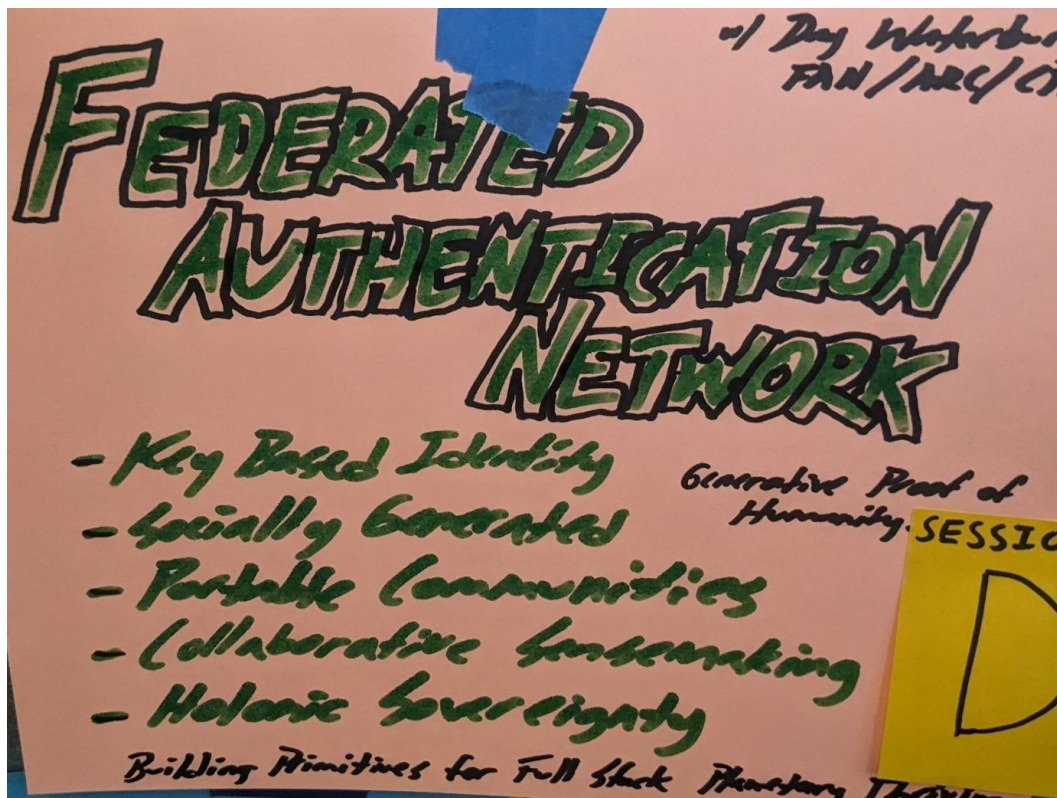 w/ Day
FAN/ARC/
FEDERATED
AUTHENTICATION
NETWORK
- Key Based Identity
- Socially Generated
- Portable Communities
- Collaborative Sensemaking
- Holonic Sovereignty
Generative Proof of
Humanity.
SESSIO
D
Building Primitives for Full Stack Planetary